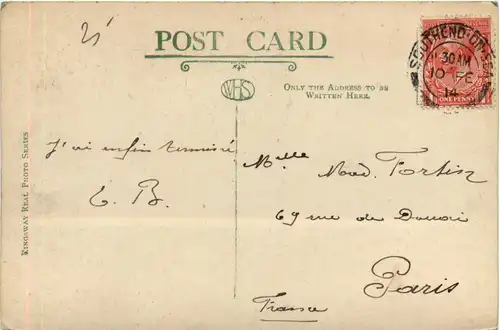 25
POST CARD
WHS
ONLY THE ADDRESS TO BE
WRITTEN HERE.
SOUTHEND-ON-SEA
30 AM
10 FE
14
ONE PENNY
KINGSWAY REAL PHOTO SERIES
J'ai enfin terminé
E. B.
Melle Mad. Fortin
69 rue de Douai
Paris
France